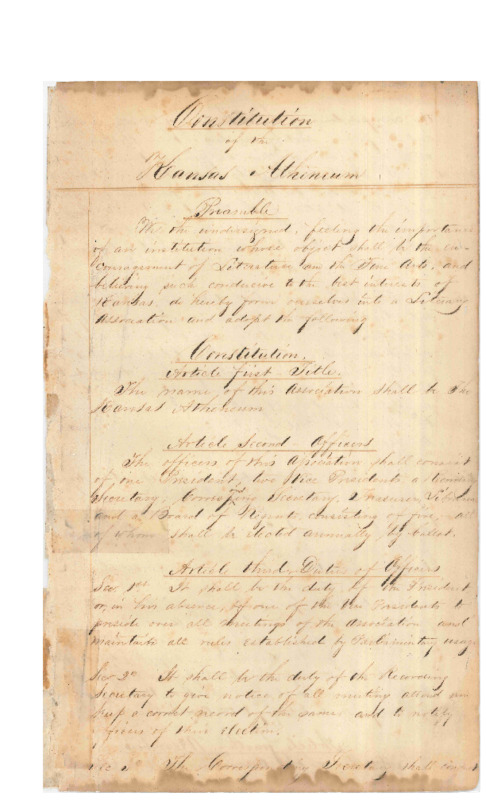 Constitution
of the
Kansas Atheneum.
Preamble
We the undersigned, feeling the importance
of an institution whose object shall be the en-
couragement of Literature and the Fine Arts, and
believing such conducive to the best interests of
Kansas, do hereby form ourselves into a Literary
Association and adopt the following
Constitution.
Article first Title.
The name of this Association shall be The
Kansas Atheneum
Article Second - Officers
The officers of this Association shall consist
of one President, two Vice Presidents, a
Secretary, Secretary, Treasurer,
and a Board of consisting of five, all
of whom shall be elected annually by ballot.
Article third, Duties of Officers
Sec 1st It shall be the duty of the President
or, in his absence, of one of the Vice Presidents to
preside over all meetings of the association and
maintain all rules established by Parliamentary usage
Sec 2d It shall be the duty of the Recording
Secretary to give notice of all meetings attend
keep a correct record of the same and to notify
officers of their election.
The Corresponding Secretary shall